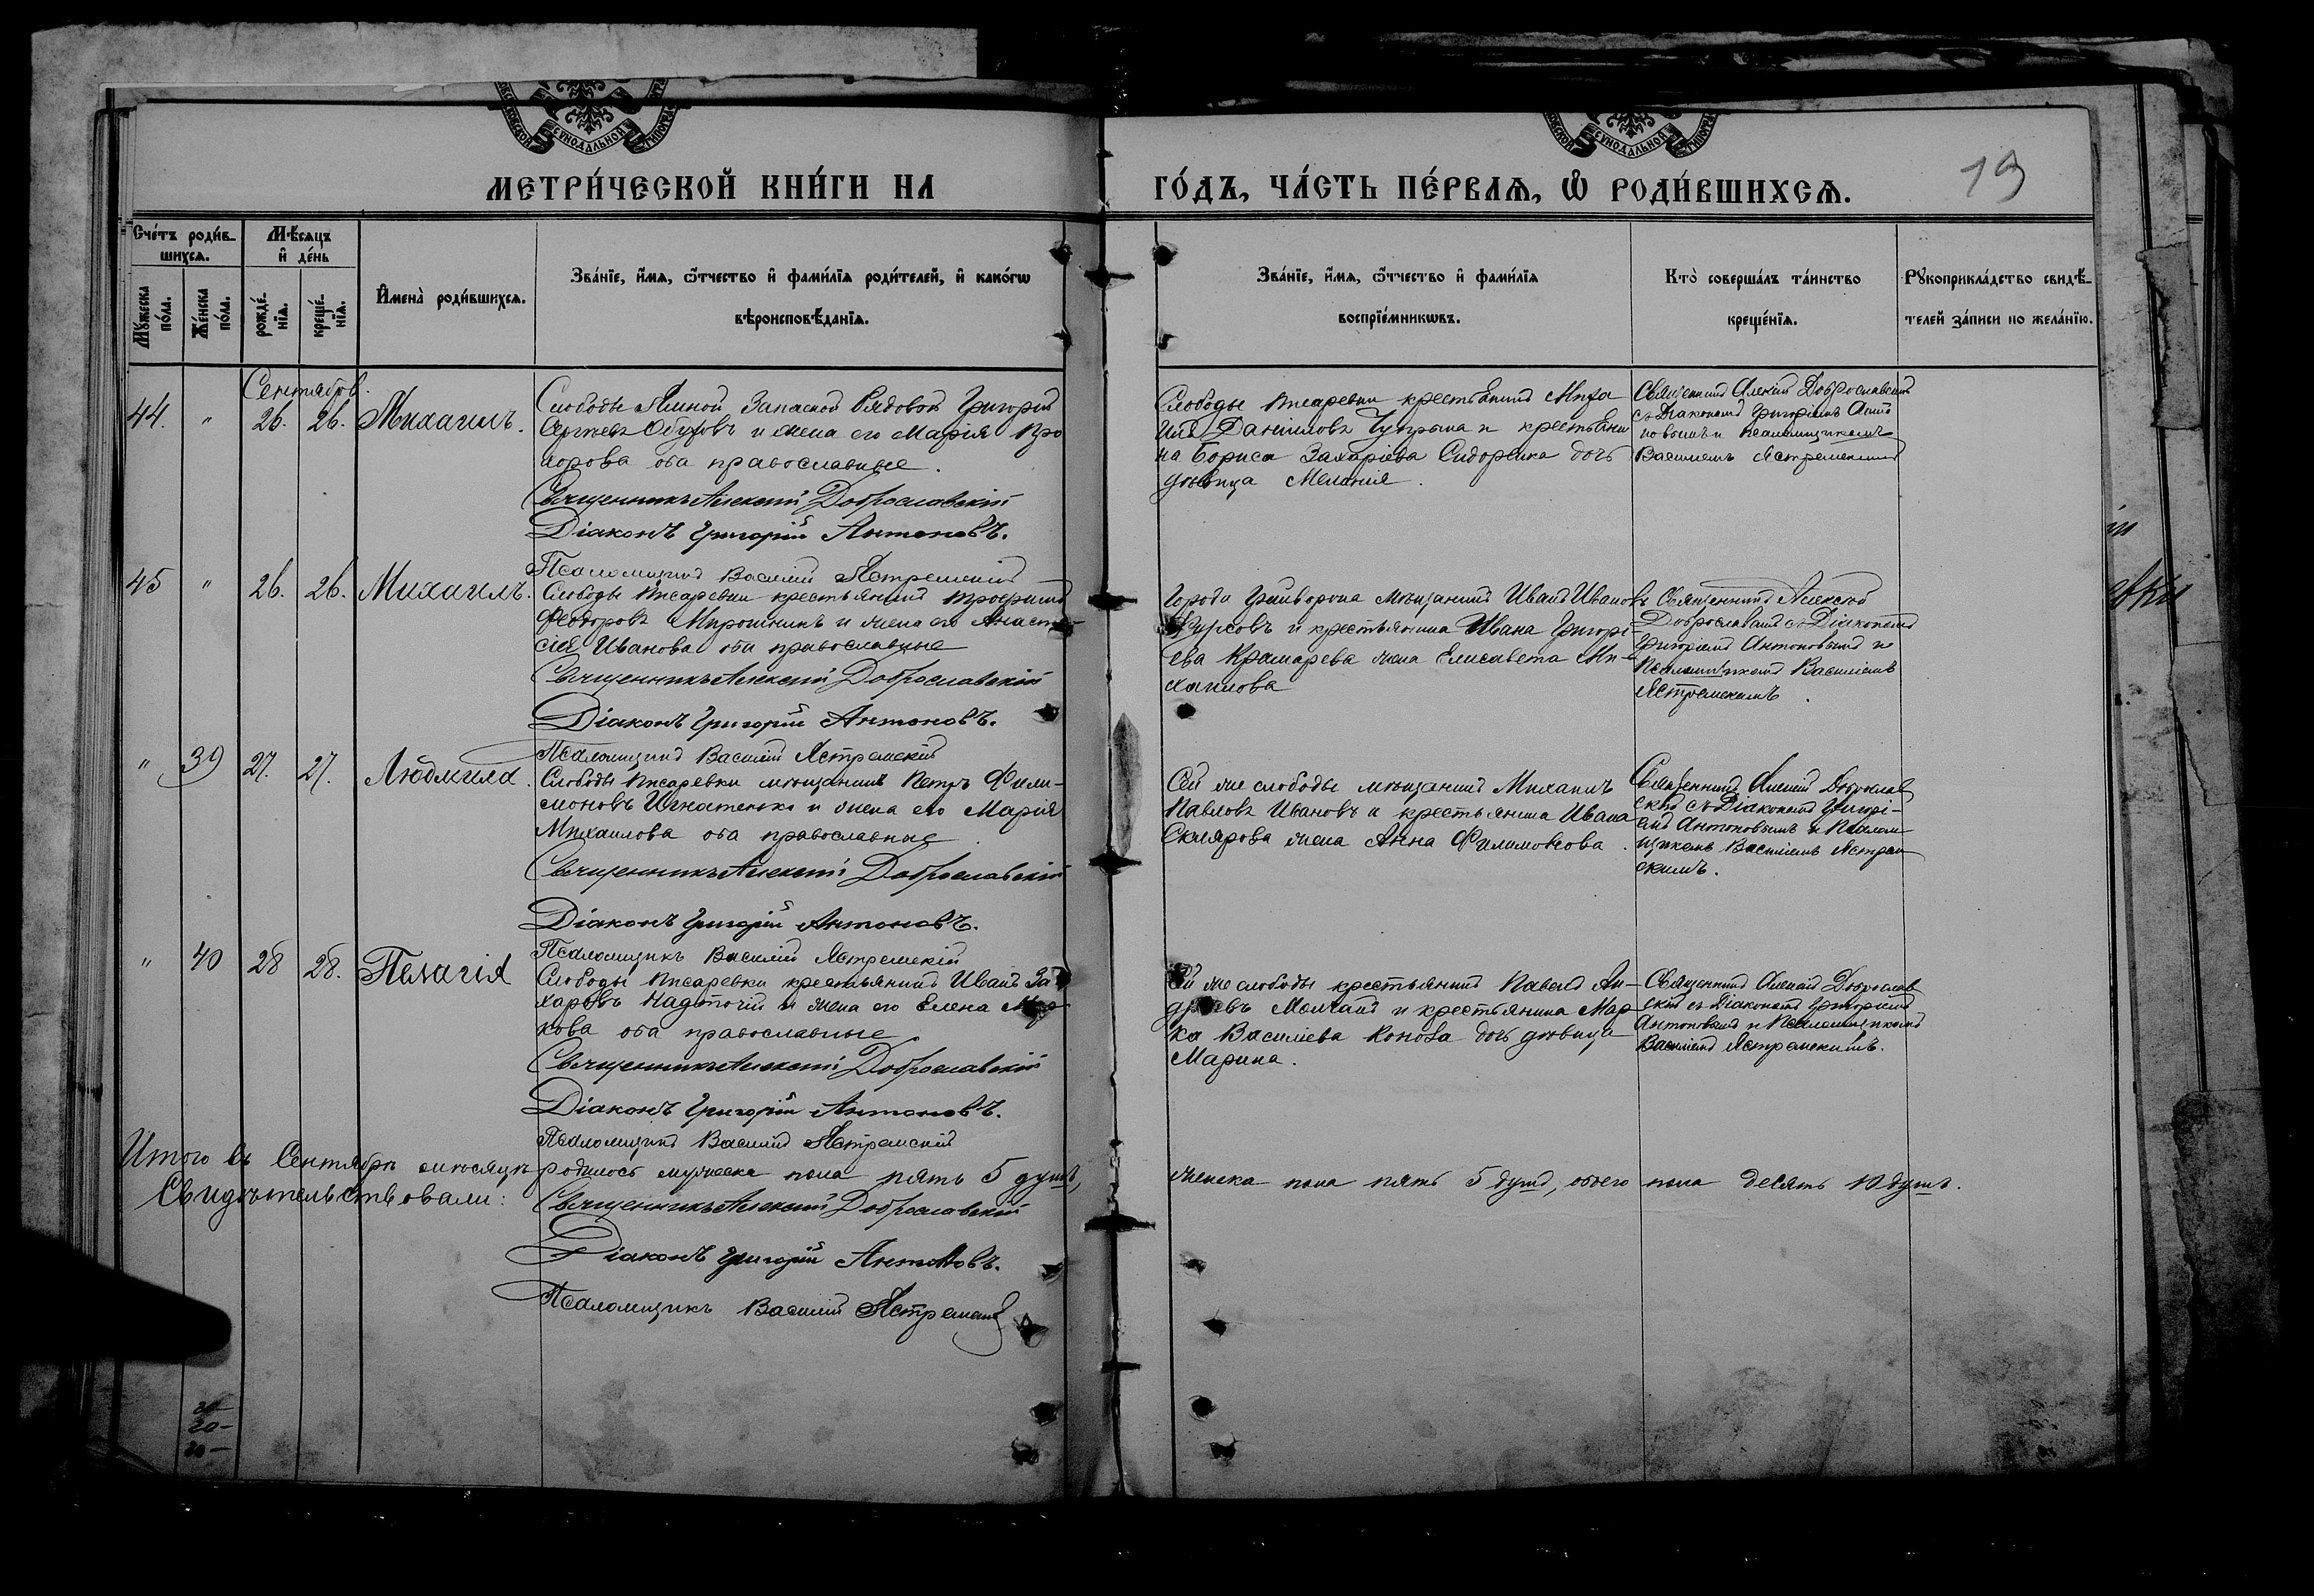 МЕТРИ́ЧЕСКОЙ КНИ́ГИ НА ГО́ДЪ, ЧА́СТЬ ПЕ́РВАЯ, Ѿ РОДИ́ВШИХСЯ.
19
Сче́тъ роди́в-
шихся.
Мѣ́сяцъ
и де́нь
Му́жеска
по́ла.
Же́нска
по́ла.
рожде́-
нїя.
креще́-
нїя.
Имена̀ роди́вшихся.
Зва́нїе, и́мя, ѻ́тчество и фами́лїя роди́телей, и како́гѡ
вѣроисповѣ́данїя.
Зва́нїе, и́мя, ѻ́тчество и фами́лїя
воспрїе́мникѡвъ.
Кто̀ соверша́лъ та́инство
креще́нїя.
Рукоприкла́дство свидѣ́-
телей за́писи по жела́нїю.
Сентябрь.
44. " 26. 26. Михаилъ.
Слободы Ямной Запасной Рядовой Григорій
Сергѣевъ Обуховъ и жена его Марія Про
хорова оба православные.
Священникъ Алексій Доброславскій
Діаконъ Григорій Антоновъ.
Псаломщикъ Василій Ястремскій
Слободы Писаревки крестьянинъ Миха
илъ Даніиловъ Чупрына и крестьяни
на Бориса Захаріева Сидоренка дочь
дѣвица Меланія.
Священникъ Алексій Доброславскій
съ Діакономъ Григоріемъ Анто
новымъ и псаломщикомъ
Василіемъ Ястремскимъ
45 " 26. 26. Михаилъ.
Слободы Писаревки крестьянинъ Трофимъ
Ѳеодоровъ Мирошникъ и жена его Анаста
сія Иванова оба православные
Священникъ Алексій Доброславскій
Діаконъ Григорій Антоновъ.
Псаломщикъ Василій Ястремскій
Города Грайворона мѣщанинъ Иванъ Ивановъ
Фирсовъ и крестьянина Ивана Григорі-
ева Крамарева жена Елисавета Ми-
хаилова
Священникъ Алексій
Доброславскій съ Діакономъ
Григоріемъ Антоновымъ и
Псаломщикомъ Василіемъ
Ястремскимъ.
" 39 27. 27. Людмила.
Слободы Писаревки мѣщанинъ Петръ Фили-
моновъ Игнатенко и жена его Марія
Михаилова оба православные.
Священникъ Алексій Доброславскій
Діаконъ Григорій Антоновъ.
Псаломщикъ Василій Ястремскій
Сей же слободы мѣщанинъ Михаилъ
Павловъ Ивановъ и крестьянина Ивана
Склярова жена Анна Филимонова.
Священникъ Алексій Доброслав
скій съ Діакономъ Григорі-
емъ Антоновымъ и Псалом-
щикомъ Василіемъ Ястрем
скимъ.
" 40 28 28. Пелагія
Слободы Писаревки крестьянинъ Иванъ За
харовъ Надточій и жена его Елена Мар-
кова оба православные
Священникъ Алексій Доброславскій
Діаконъ Григорій Антоновъ.
Псаломщикъ Василій Ястремскій
Сей же слободы крестьянинъ Павелъ Ан-
дреевъ Молчанъ и крестьянина Мар-
ка Василіева дочь дѣвица
Марина.
Священникъ Алексій Доброслав
скій съ Діакономъ Григоріемъ
Антоновымъ и Псаломщикомъ
Василіемъ Ястремскимъ.
Итого въ Сентябрѣ мѣсяцѣ родилось мужеска пола пять 5 душъ, женска пола пять 5 душъ, обоего пола десять 10 душъ.
Свидѣтельствовали:
Священникъ Алексій Доброславскій
Діаконъ Григорій Антоновъ.
Псаломщикъ Василій Ястремскій
20-
20-
20-